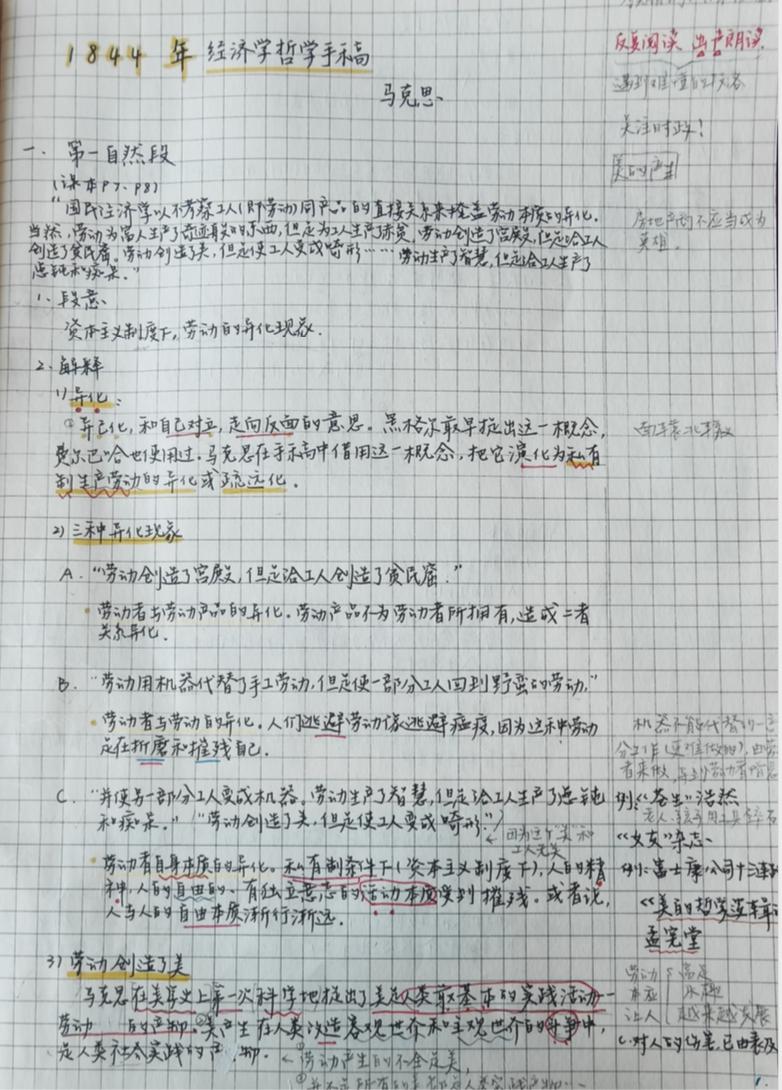 1844年经济学哲学手稿
马克思
一、第一自然段
(课本P7、P8)
“国民经济学以不考察工人(即劳动)同产品的直接关系来掩盖劳动本质的异化。
当然,劳动为富人生产了奇迹般的东西,但是为工人生产了赤贫。劳动创造了宫殿,但是给工人
创造了贫民窟。劳动创造了美,但是使工人变成畸形……劳动生产了智慧,但是给工人生产了
愚钝和痴呆。”
1、段意
资本主义制度下,劳动的异化现象.
2、解释
1)异化:
①异己化,和自己对立,走向反面的意思。黑格尔最早提出这一概念,
费尔巴哈也使用过.马克思在手稿中借用这一概念,把它演化为私有
制生产劳动的异化或疏远化.
2)三种异化现象
A.“劳动创造了宫殿,但是给工人创造了贫民窟.”
劳动者与劳动产品的异化.劳动产品不为劳动者所拥有,造成二者
关系异化.
B.“劳动用机器代替了手工劳动,但是使一部分工人回到野蛮的劳动.”
劳动者与劳动的异化.人们逃避劳动像逃避瘟疫,因为这种劳动
是在折磨和摧残自己.
C.“并使另一部分工人变成机器。劳动生产了智慧,但是给工人生产了愚钝
和痴呆.”“劳动创造了美,但是使工人变成畸形.”
因为这个“美”和
工人无关
劳动者自身本质的异化.私有制条件下(资本主义制度下),人的精
神,人的自由的、有独立意志的活动本质受到摧残.或者说,
人与人的自由本质渐行渐远.
3)劳动创造了美
马克思在美学史上第一次科学地提出了美是人类最基本的实践活动—
劳动——的产物.美产生在人类改造客观世界和主观世界的斗争中,
是人类社会实践的产物.
①劳动产生的不全是美,
反复阅读 出声朗读
关注时政!
美的产生
房地产商不应当成为
英雄.
机器不能代替的一部
分工作(更难做的),由劳动
者来做
例:《苍生》浩然
《女友》杂志
例:富士康公司十三连跳
《美的哲学逻辑》
孟宪堂
劳动 富足
本应 乐趣
让人 越来越发展